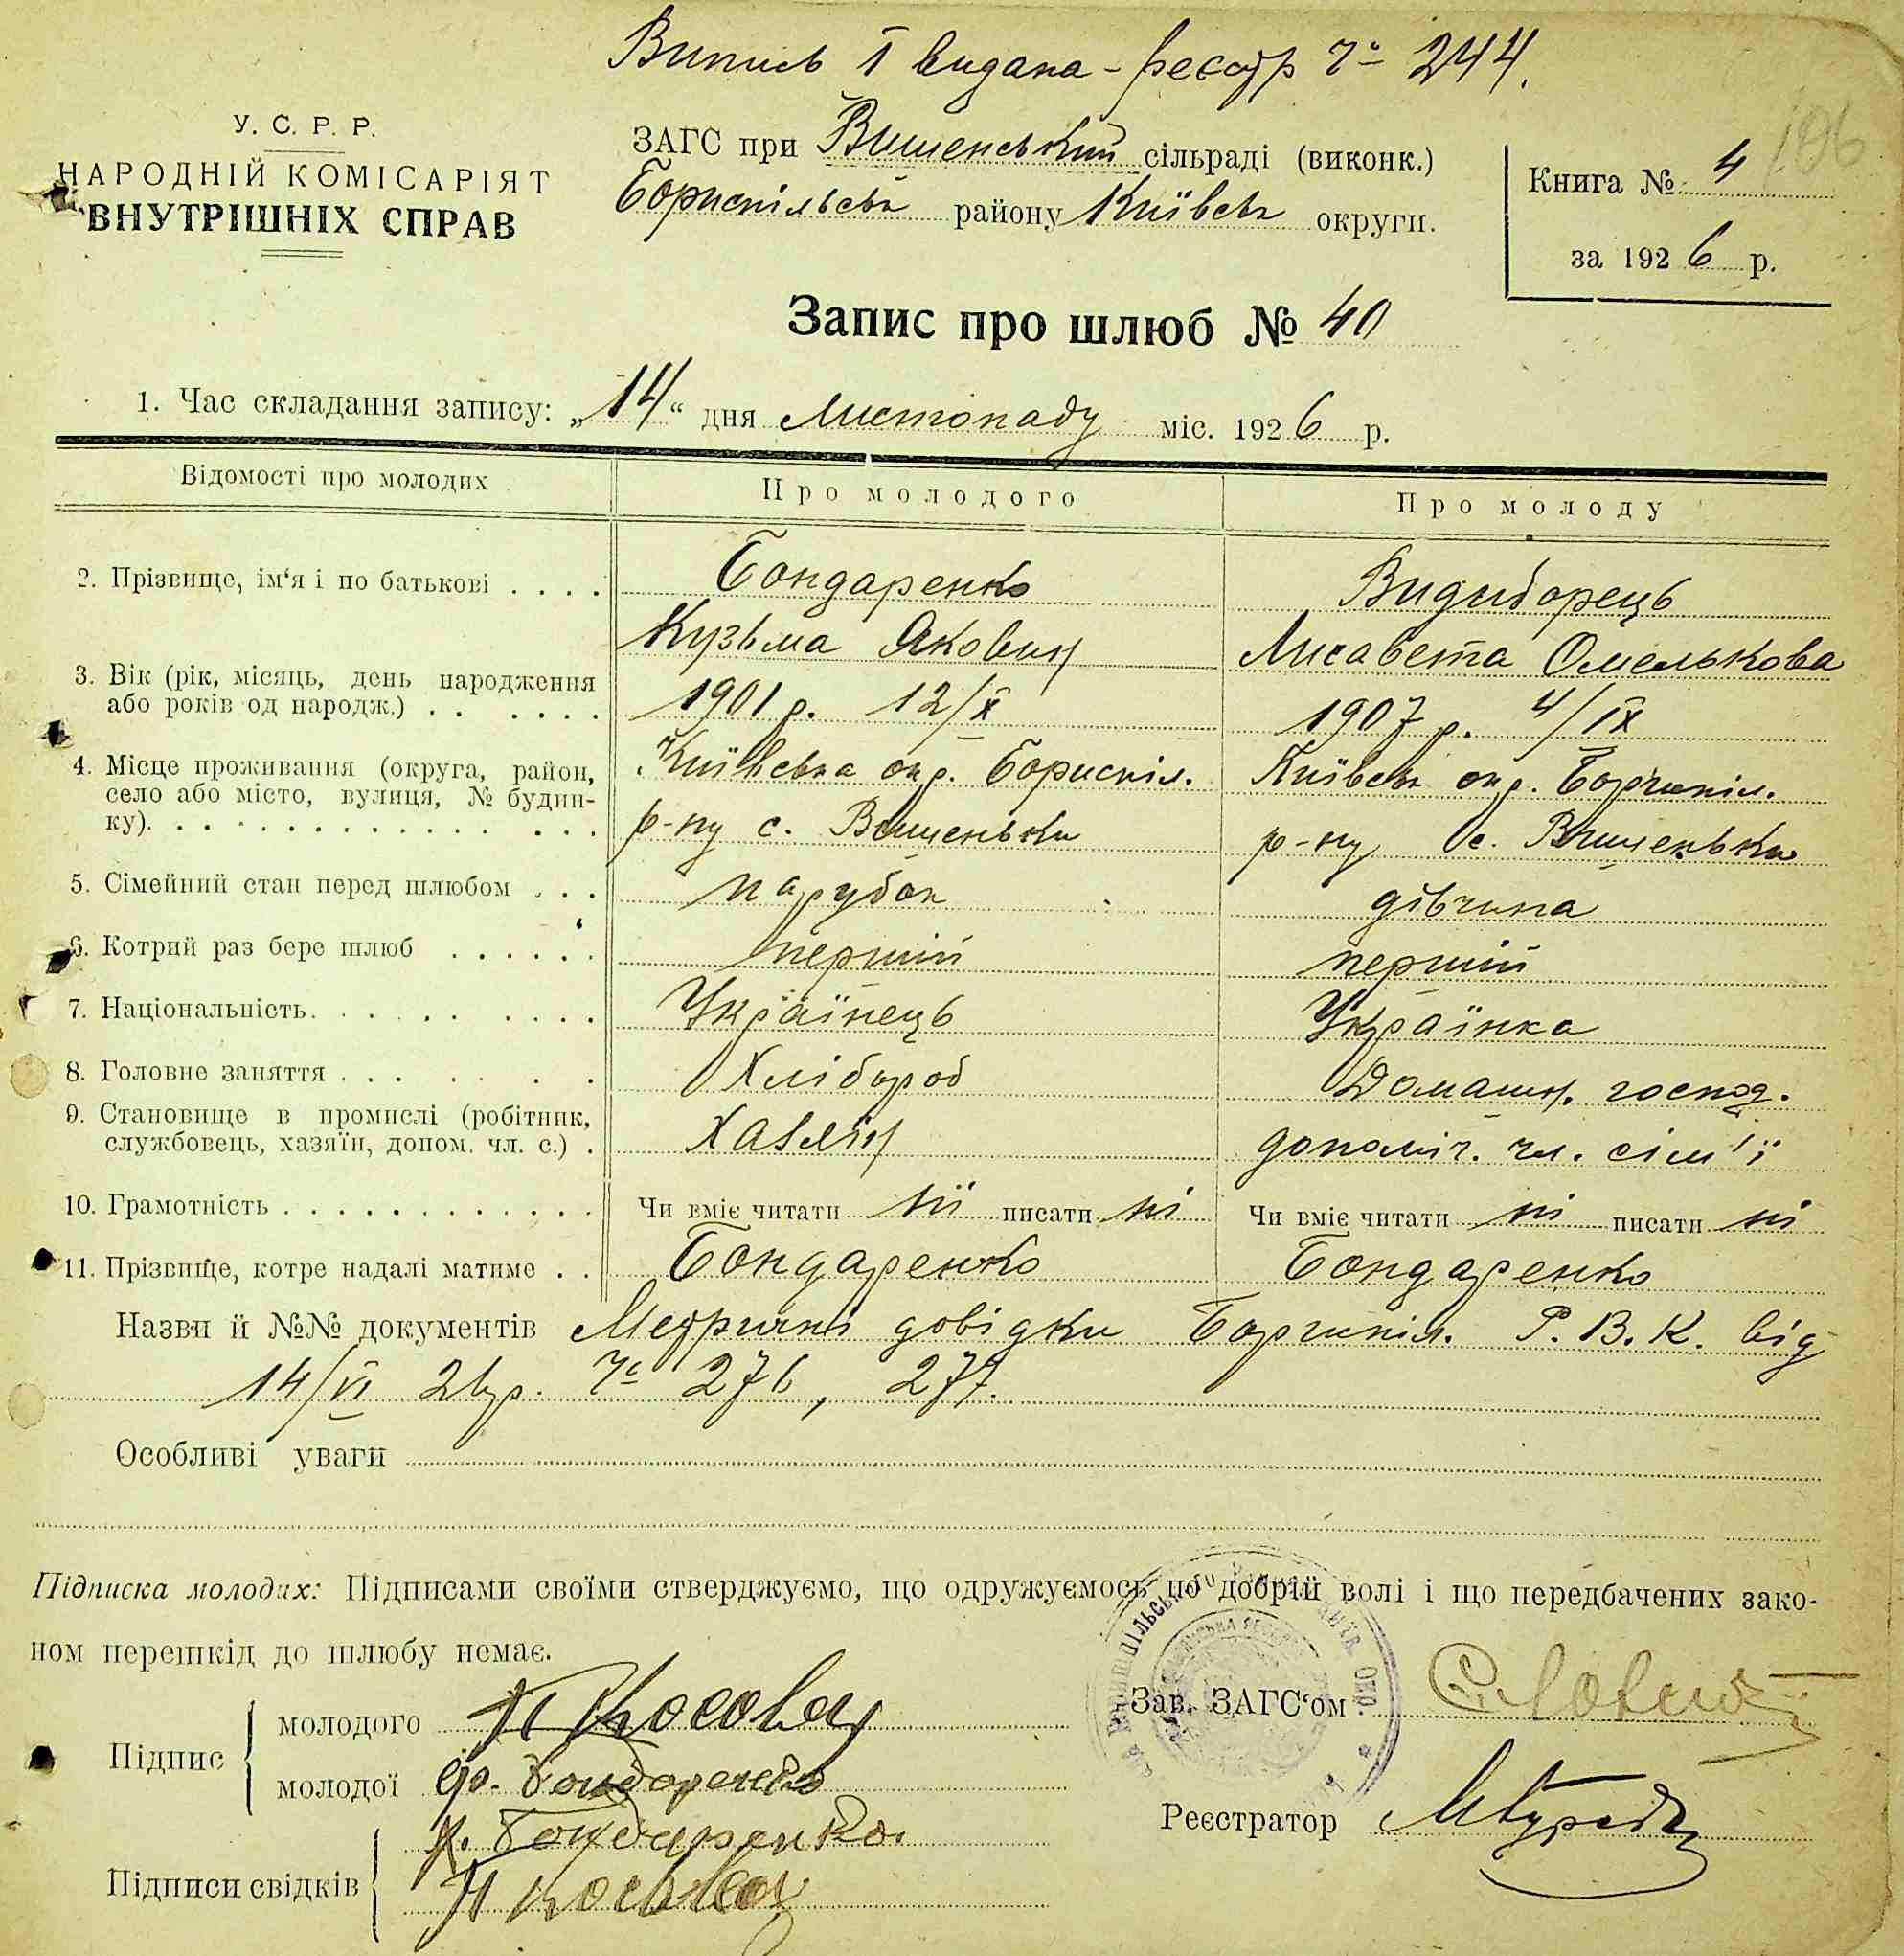 Випись 1 видана - реєстр № 244.
У. С. Р. Р.
НАРОДНІЙ КОМІСАРІЯТ
ВНУТРІШНІХ СПРАВ
ЗАГС при Вишенський сільраді (виконк.)
Бориспільськ району Київськ округи.
Книга № 4
106
за 1926 р.
Запис про шлюб № 40
1. Час складання запису: „14“ дня Листопаду міс. 1926 р.
Відомості про молодих
Про молодого
Про молоду
2. Прізвище, ім‘я і по батькові
Бондаренко
Кузьма Якович
Видиборець
Лисавета Омелькова
3. Вік (рік, місяць, день народження
або років од народж.)
1901 р. 12/X
1907 р. 4/IX
4. Місце проживання (округа, район,
село або місто, вулиця, № будин-
ку).
Київська окр. Бориспіл.
р-ну с. Вишеньки
Київськ окр. Бориспіл.
р-ну с. Вишеньки
5. Сімейний стан перед шлюбом
парубок
дівчина
6. Котрий раз бере шлюб
перший
перший
7. Національність
Українець
Українка
8. Головне заняття
Хлібороб
Домашн. господ.
9. Становище в промислі (робітник,
службовець, хазяїн, допом. чл. с.)
Хазяїн
допоміч. чл. сім'ї
10. Грамотність
Чи вміє читати ні писати ні
Чи вміє читати ні писати ні
11. Прізвище, котре надалі матиме
Бондаренко
Бондаренко
Назви й №№ документів Метричні довідки Бориспіл. Р. В. К. від
14/VI 26 р. № 276, 277.
Особливі уваги
Підписка молодих: Підписами своїми стверджуємо, що одружуємось по добрій волі і що передбачених зако-
ном перешкід до шлюбу немає.
Підпис
молодого
молодої Бондаренко
Підписи свідків
Бондаренко
Зав. ЗАГС‘ом
Реєстратор